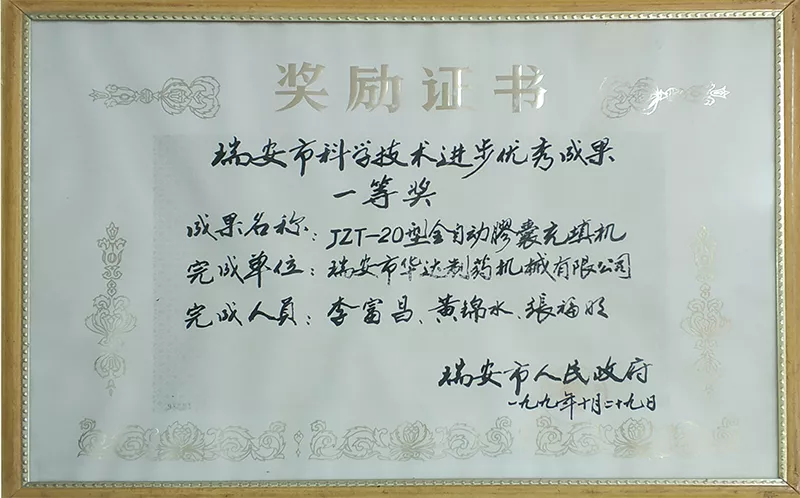 奖励证书
瑞安市科学技术进步优秀成果
一等奖
成果名称：JZT-20型全自动膠囊充填机
完成单位：瑞安市华达制药机械有限公司
完成人员：李富昌、黄锦水、張福明
瑞安市人民政府
一九九年十月二十九日